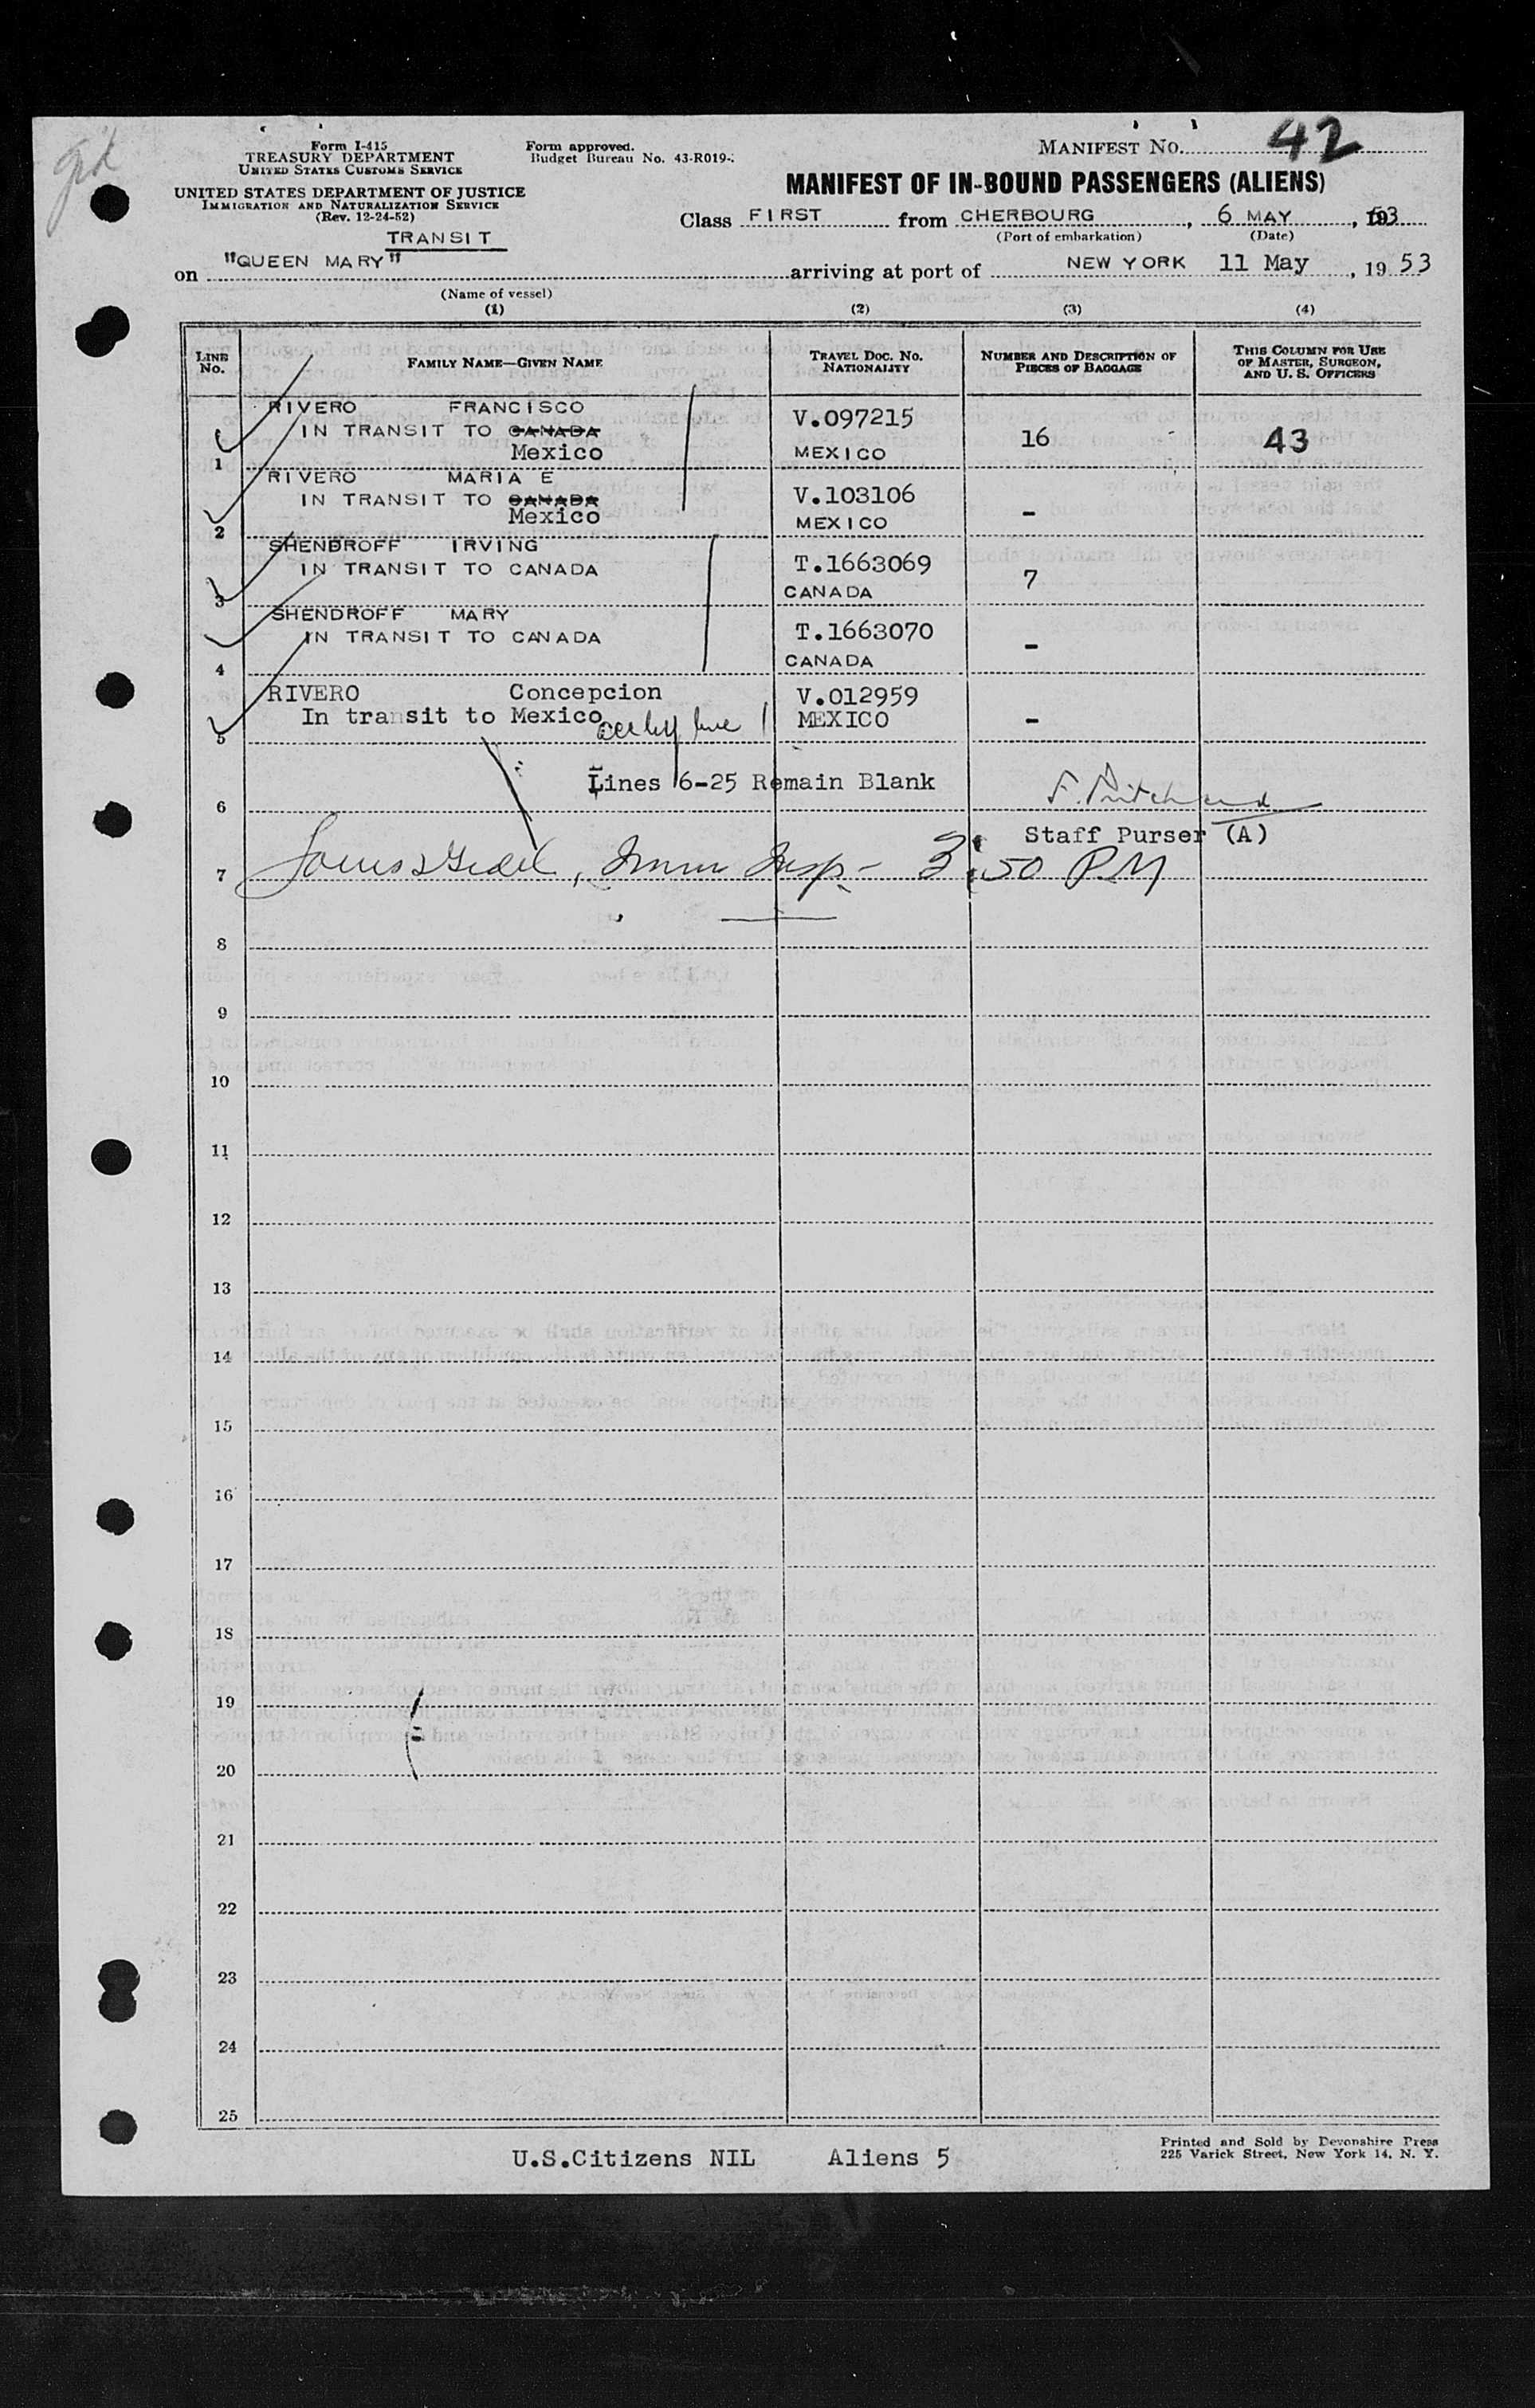 Form I-415
TREASURY DEPARTMENT
UNITED STATES CUSTOMS SERVICE
UNITED STATES DEPARTMENT OF JUSTICE
IMMIGRATION AND NATURALIZATION SERVICE
(Rev. 12-24-52)
Form approved.
Budget Bureau No. 43-R019-
MANIFEST NO. 42
MANIFEST OF IN-BOUND PASSENGERS (ALIENS)
Class FIRST from CHERBOURG, 6 MAY, 1953
(Port of embarkation) (Date)
TRANSIT
on "QUEEN MARY" arriving at port of NEW YORK 11 May, 1953
(Name of vessel)
(1) (2) (3) (4)
LINE No. FAMILY NAME—GIVEN NAME TRAVEL DOC. NO. NATIONALITY NUMBER AND DESCRIPTION OF PIECES OF BAGGAGE THIS COLUMN FOR USE OF MASTER, SURGEON, AND U. S. OFFICERS
RIVERO FRANCISCO V.097215
IN TRANSIT TO CANADA 16 43
1 Mexico MEXICO
RIVERO MARIA E V.103106
IN TRANSIT TO CANADA -
2 Mexico MEXICO
SHENDROFF IRVING T.1663069
IN TRANSIT TO CANADA 7
3 CANADA
SHENDROFF MARY T.1663070
IN TRANSIT TO CANADA -
4 CANADA
RIVERO Concepcion V.012959
In transit to Mexico MEXICO -
5
Lines 6-25 Remain Blank F. Pritchard
6
Staff Purser (A)
7 Imm Insp- 3:50 PM
8
9
10
11
12
13
14
15
16
17
18
19
20
21
22
23
24
25
U.S.Citizens NIL Aliens 5
Printed and Sold by Devonshire Press
225 Varick Street, New York 14, N. Y.